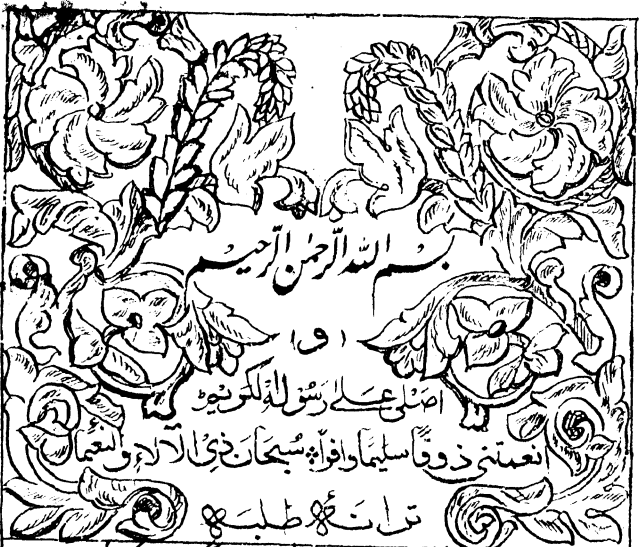 بِسْمِ اللّٰهِ الرَّحْمٰنِ الرَّحِيْمِ
(و)
اصلی عَلیٰ رَسُوْلِهٖ لکریم
انعمتنی ذوقًا سلیمًا وافرًا سُبحانَ ذِی الْآلاءِ والنعما
ترانۂ طلبہ